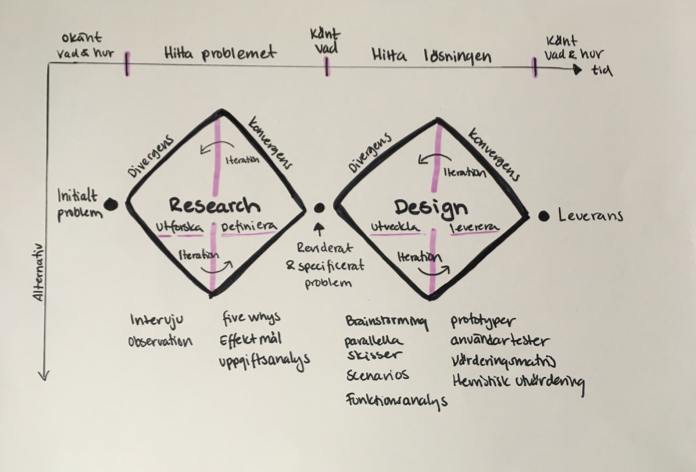 okänt
vad & hur
Hitta problemet
känt
vad
Hitta lösningen
känt
vad & hur
tid
Alternativ
Initialt
problem
Divergens
Konvergens
Iteration
Research
Utforska
Definiera
Iteration
Reviderat
& specificerat
problem
Divergens
Konvergens
Iteration
Design
Utveckla
leverera
Iteration
Leverans
Intervju
observation
five whys
Effektmål
uppgiftsanalys
Brainstorming
parallella
skisser
Scenarios
Funktionsanalys
prototyper
användartester
värderingsmatris
Heuristisk utvärdering